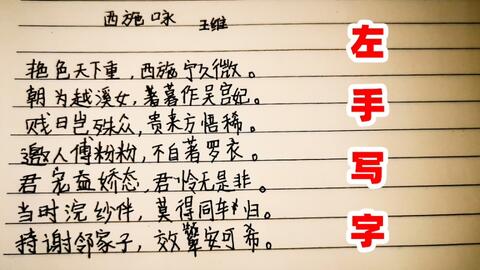 西施咏 王维
艳色天下重，西施宁久微。
朝为越溪女，暮作吴宫妃。
贱日岂殊众，贵来方悟稀。
邀人傅粉粉，不自著罗衣。
君宠益娇态，君怜无是非。
当时浣纱伴，莫得同车归。
持谢邻家子，效颦安可希。
左手写字